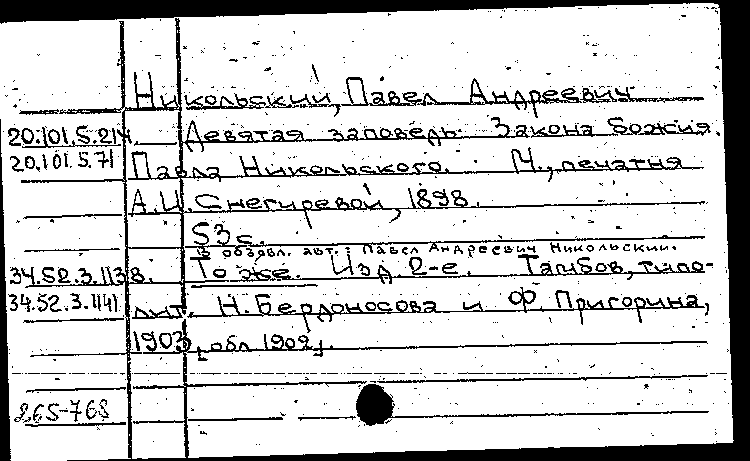 Никольский, Павел Андреевич
20.101.5.214. Девятая заповедь Закона Божия.
20.101.5.71 Павла Никольского. М., печатня
А.И. Снегиревой, 1898.
53 с.
В обозвл. авт.: Павел Андреевич Никольский.
34.52.3.1138. То же. Изд. 2-е. Тамбов, типо-
34.52.3.1141 лит. Н. Бердоносова и Ф. Пригорина,
1903 [обл 1902].
265-768